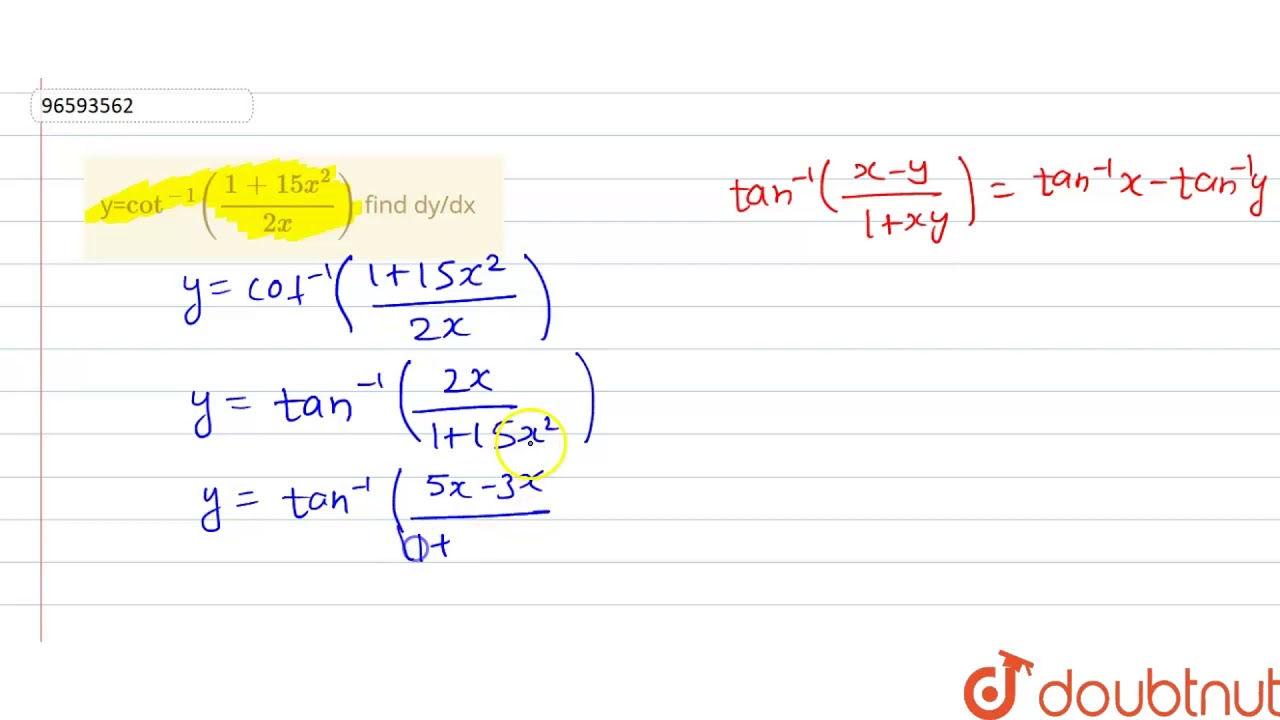 96593562
y=cot⁻¹((1 + 15x²)/(2x)) find dy/dx
tan⁻¹((x-y)/(1+xy)) = tan⁻¹x - tan⁻¹y
y = cot⁻¹((1+15x²)/(2x))
y = tan⁻¹((2x)/(1+15x²))
y = tan⁻¹((5x-3x)/(1+
doubtnut